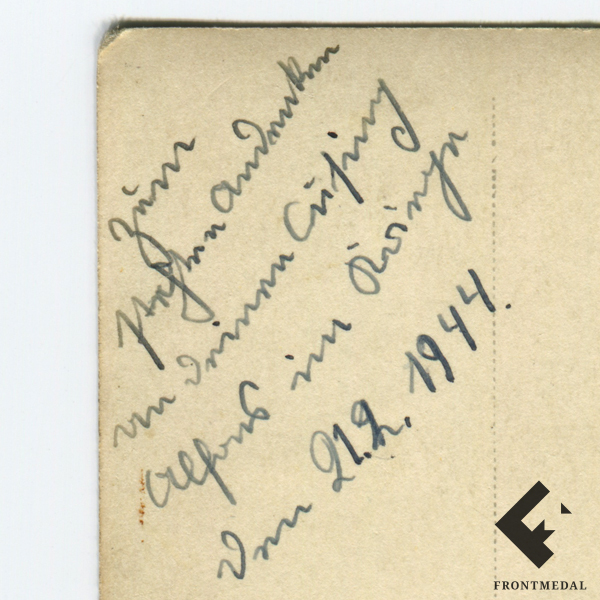 Zum
steten Andenken
von deinem Cusing
Alfons im Kriege
Den 21.2. 1944.
FRONTMEDAL